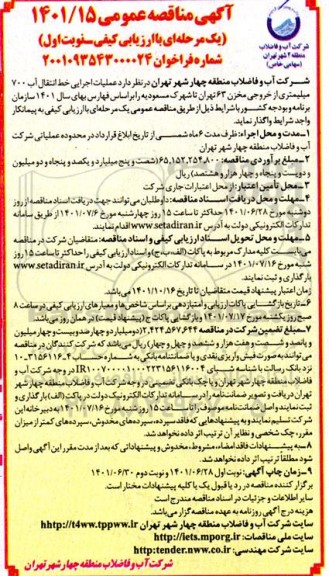 شرکت آب و فاضلاب
منطقه ۴ شهر تهران
(سهامی خاص)
آگهی مناقصه عمومی ۱۴۰۱/۱۵
(یک مرحله‌ای با ارزیابی کیفی-نوبت اول)
شماره فراخوان ۲۰۰۱۰۹۳۵۴۳۰۰۰۰۲۴
شرکت آب و فاضلاب منطقه چهار شهر تهران در نظر دارد عملیات اجرایی خط انتقال آب ۷۰۰
میلیمتری از خروجی مخزن ۶۳ تهران تا شهرک مسعودیه را براساس فهارس بهای سال ۱۴۰۱ سازمان
برنامه و بودجه کشور با شرایط ذیل از طریق مناقصه عمومی یک مرحله‌ای با ارزیابی کیفی به پیمانکار
واجد شرایط واگذار نماید.
۱-مدت و محل اجراء: ظرف مدت ۶ ماه شمسی از تاریخ ابلاغ قرارداد در محدوده عملیاتی شرکت
آب و فاضلاب منطقه چهار شهر تهران
۲-مبلغ برآوردی مناقصه: ۶۵,۱۵۲,۲۵۴,۸۰۰(شصت و پنج میلیارد و یکصد و پنجاه و دو میلیون
و دویست و پنجاه و چهار هزار و هشتصد) ریال
۳-محل تأمین اعتبار: از محل اعتبارات جاری شرکت
۴-مهلت و محل دریافت اسناد مناقصه: داوطلبان می‌توانند جهت دریافت اسناد مناقصه از روز
دوشنبه مورخ ۱۴۰۱/۰۶/۲۸ حداکثر تا ساعت ۱۵ روز چهارشنبه مورخ ۱۴۰۱/۰۷/۶ از طریق سامانه
تدارکات الکترونیکی دولت به آدرس www.setadiran.ir اقدام نمایند.
۵-مهلت و محل تحویل اسناد ارزیابی کیفی و اسناد مناقصه: متقاضیان شرکت در مناقصه
می‌بایست کلیه مدارک مربوط به پاکات (الف،ب،ج) و اسناد ارزیابی کیفی را حداکثر تا ساعت ۱۵ روز
شنبه مورخ ۱۴۰۱/۰۷/۱۶ در سامانه تدارکات الکترونیکی دولت به آدرس www.setadiran.ir
بارگذاری و ثبت نمایند.
زمان اعتبار پیشنهاد قیمت متقاضیان تا تاریخ ۱۴۰۱/۱۰/۱۶ می‌باشد.
۶-تاریخ بازگشایی پاکات ارزیابی و امتیازدهی براساس شاخص‌ها و معیارهای ارزیابی کیفی در ساعت ۸
صبح روز یکشنبه مورخ ۱۴۰۱/۰۷/۱۷ و بازگشایی پاکات ج (پیشنهاد قیمت) در همان روز می‌باشد.
۷-مبلغ تضمین شرکت در مناقصه ۲,۴۲۴,۵۶۷,۶۴۴(دو میلیارد و چهارصد و بیست و چهار میلیون
و پانصد و شصت و هفت هزار و ششصد و چهل و چهار) ریال می باشد که شرکت کنندگان در مناقصه
می‌توانند به صورت فیش واریز نقدی و یا ضمانتنامه بانکی به شماره حساب
نزد بانک رسالت با شناسه شبای در وجه شرکت آب و
فاضلاب منطقه چهار شهر تهران و یا چک بانکی تضمینی در وجه شرکت آب و فاضلاب منطقه چهار شهر
تهران دریافت و تصویر ضمانتنامه را در سامانه تدارکات الکترونیک دولت در پاکت (الف) بارگذاری و
ثبت نمایند و اصل ضمانتنامه موصوف را تا ساعت ۱۵ روز شنبه مورخ ۱۴۰۱/۰۷/۱۶ به دبیرخانه این
شرکت تسلیم نمایند و به پیشنهادهایی که فاقد سپرده، سپرده‌های مخدوش، سپرده‌های کمتر از میزان
مقرر، چک شخصی و نظایر آن ترتیب اثر داده نخواهد شد.
۸-به پیشنهادات فاقد امضاء، مشروط، مخدوش و پیشنهاداتی که بعد از مدت مقرر این آگهی واصل
شود مطلقاً ترتیب اثر داده نخواهد شد.
۹-زمان چاپ آگهی: نوبت اول ۱۴۰۱/۰۶/۲۸ و نوبت دوم ۱۴۰۱/۰۶/۳۰
برگزارکننده مناقصه در رد یا قبول یک یا کلیه پیشنهادات مختار است.
سایر اطلاعات و جزئیات در اسناد مناقصه مندرج است
هزینه درج آگهی روزنامه به عهده مناقصه‌گزار می‌باشد.
سایت شرکت آب و فاضلاب منطقه چهار شهر تهران hhtp://t4ww.tppww.ir
سایت ملی مناقصات: http://iets.mporg.ir
سایت شرکت مهندسی: http:tender.nww.co.ir
شرکت آب و فاضلاب منطقه چهار شهر تهران